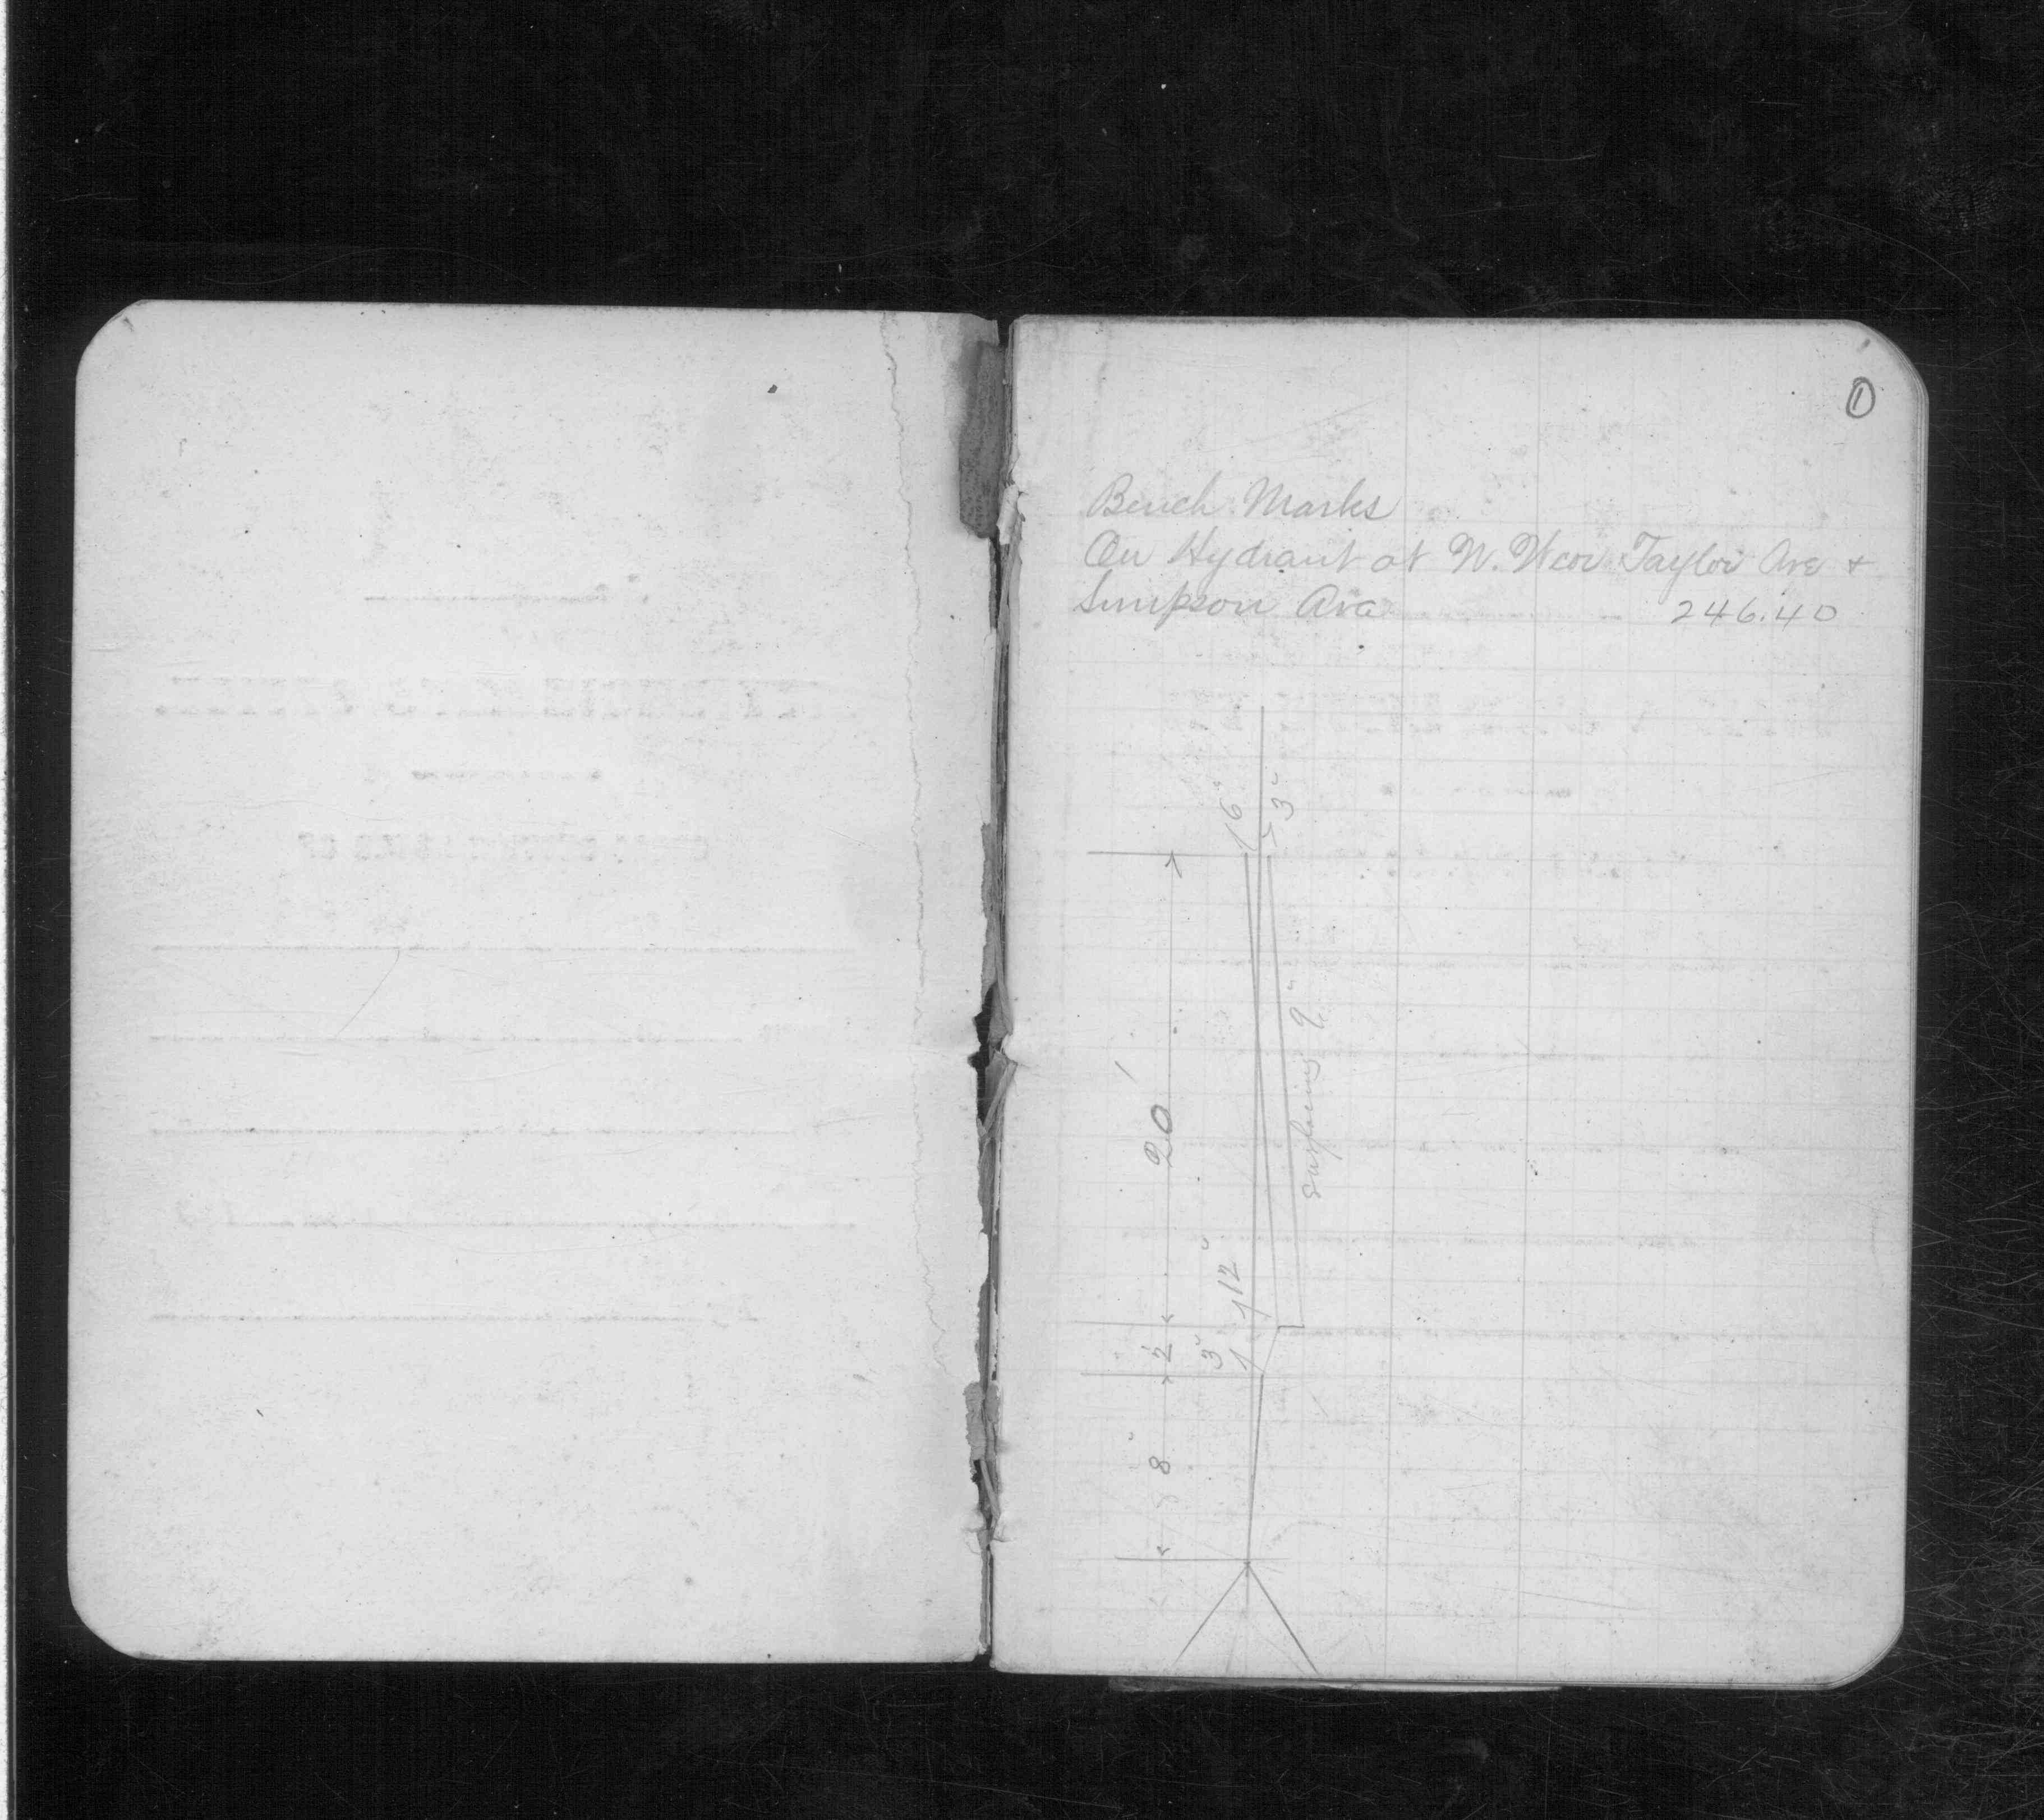 1
Bench Marks
On Hydrant at N. W cor Taylor Ave +
Simpson Ave 246.40
6"
3"
20'
surfacing 9"
12"
2'
3"
8'